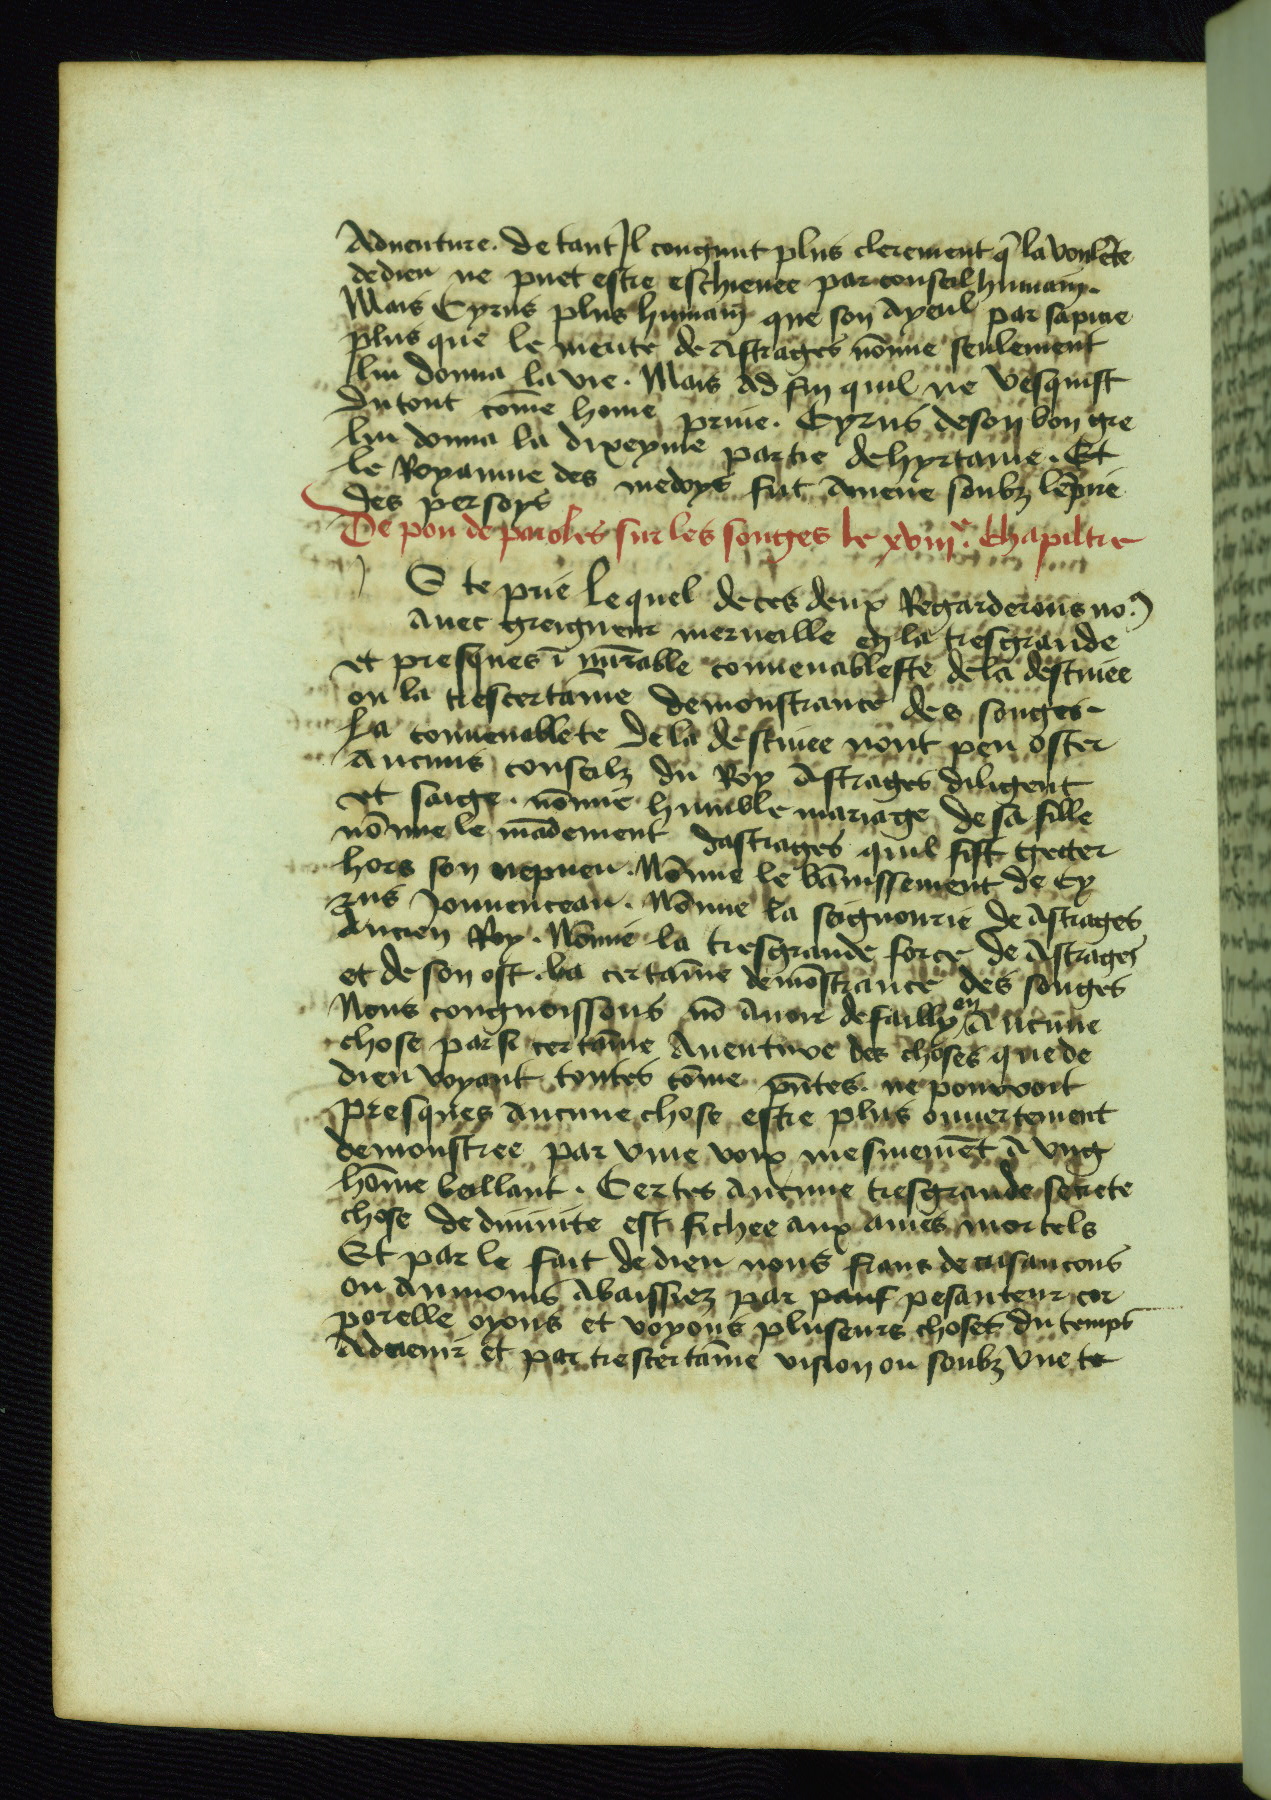 Aduenture. de tant Il congnut plus clerement q̃ la voulẽte
de dieu ne puet estre eschieuee par conseil humain.
Mais Cyrus plus humain que son ayeul par sapine
plus que le merite de Astrages nõnne seulement
lui donna la vie. Mais ad fin quil ne vesquist
du tout cõme home priue. Cyrus de son bon gre
lui donna la dixeyme partie de hyrtanie. Et
le Royaume des medoys fut amene soubz lẽpire
des persoys
De pou de paroles sur les songes le xviiie. chapiltre
G te prie Lequel de ces deux Regarderons no9
auec greigneur merueille en la tresgrande
et presques ĩ mũrable conuenableste de la destinee
ou la trescertaine demonstrance des songes.
La conuenablete de la destinee nont peu oster
Aucuns conseilz du Roy Astrages diligent
et saige. nõnne humble mariage de sa fille
nõnne le mãdement dastrages quil fist getter
hors son nepueu. Nõnne le bãnissement de Cy
rus Jouuenceau. Nõnne la seignourie de Astrages
Ancien Roy. Nõnne la tresgrande force de Astrages
et de son ost. La certaĩne demõstrance des songes
Nous congnoissons nõ auoir defailly en Aucune
chose par si certaĩne auenture des choses que de
dieu voyant toutes cõme p̃ntes. ne pourroit
presques aucune chose estre plus ouuertement
demonstree par vne voix mesmemẽt a vng
hõme veillant. Certes aucune tresgrande secrete
chose de diuinite est fichee aux ames mortels
Et par le fait de dieu nous frans de cusancons
ou aumoins abaissiez par pesanteur cor
porelle oyons et voyons pluseurs choses du temps
Aduenir et par trescertaĩne vision ou soubz vne te